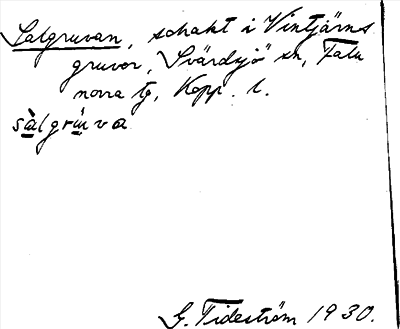 Salgruvan, schakt i Vintjärns
gruvor, Svärdsjö sn, Falu
norra tg, Kopp. l.
sàlgrùva
G. Tideström 1930.